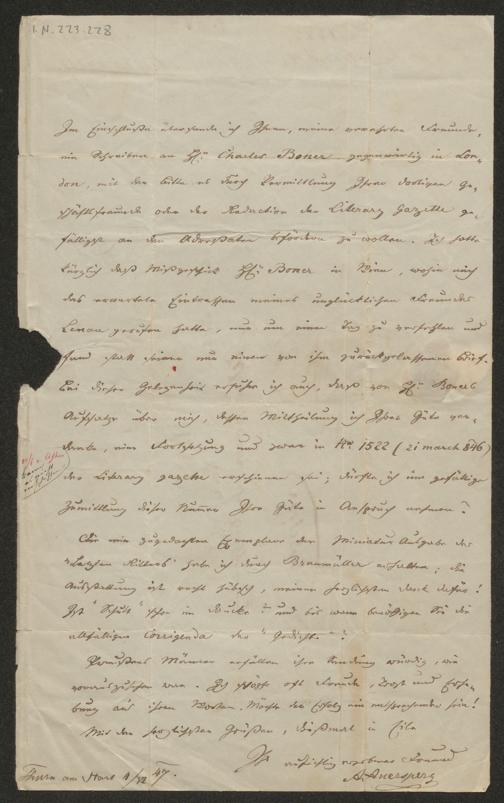 I.N. 223.228
Im Einschluße übersende ich Ihnen, mein verehrter Freund,
ein Schreiben an H. Charles Boner gegenwärtig in Lon-
don, mit der Bitte es durch Vermittlung Ihres dortigen Ge-
schäftsfreundes oder der Redaction der Literary Gazette ge-
fälligst an den Adressaten befördern zu wollen. Ich hatte
kürzlich das Mißgeschick H. Boner in Wien, wohin mich
das erwartete Eintreffen meines unglücklichen Freundes
Lenau gerufen hatte, nur um einen Tag zu verfehlen und
fand statt seiner nur einen von ihm zurückgelassenen Brief.
Bei dieser Gelegenheit erfuhr ich auch, daß von H. Boners
Aufsatze über mich, dessen Mittheilung ich Ihrer Güte ver-
danke, eine Fortsetzung und zwar in No. 1522 (21 march 846)
der Literary gazette erschienen sei; dürfte ich um gefällige
Zumittlung dieser Numer Ihre Güte in Anspruch nehmen?
Die mir zugedachten Exemplare der Miniatur Ausgabe des
"Letzten Ritters" habe ich durch Braumüller erhalten; die
Ausstattung ist recht hübsch, meinen herzlichsten Dank dafür!
Ist "Schutt" schon im Drucke? und bis wann benöthigen Sie die
allfälligen Corrigenda der "Gedichte"?
Männer erfüllen ihre Sendung würdig, wie
vorauszusehen war. Ich schöpfe oft Freude, Trost und Erhe-
bung aus ihren Worten. Möchte der Erfolg ein entsprechender sein!
Mit den herzlichsten Grüßen, dießmal in Eile
Ihr aufrichtig ergebener Freund
A. Auersperg
Thurn am Hart 4/12 47.